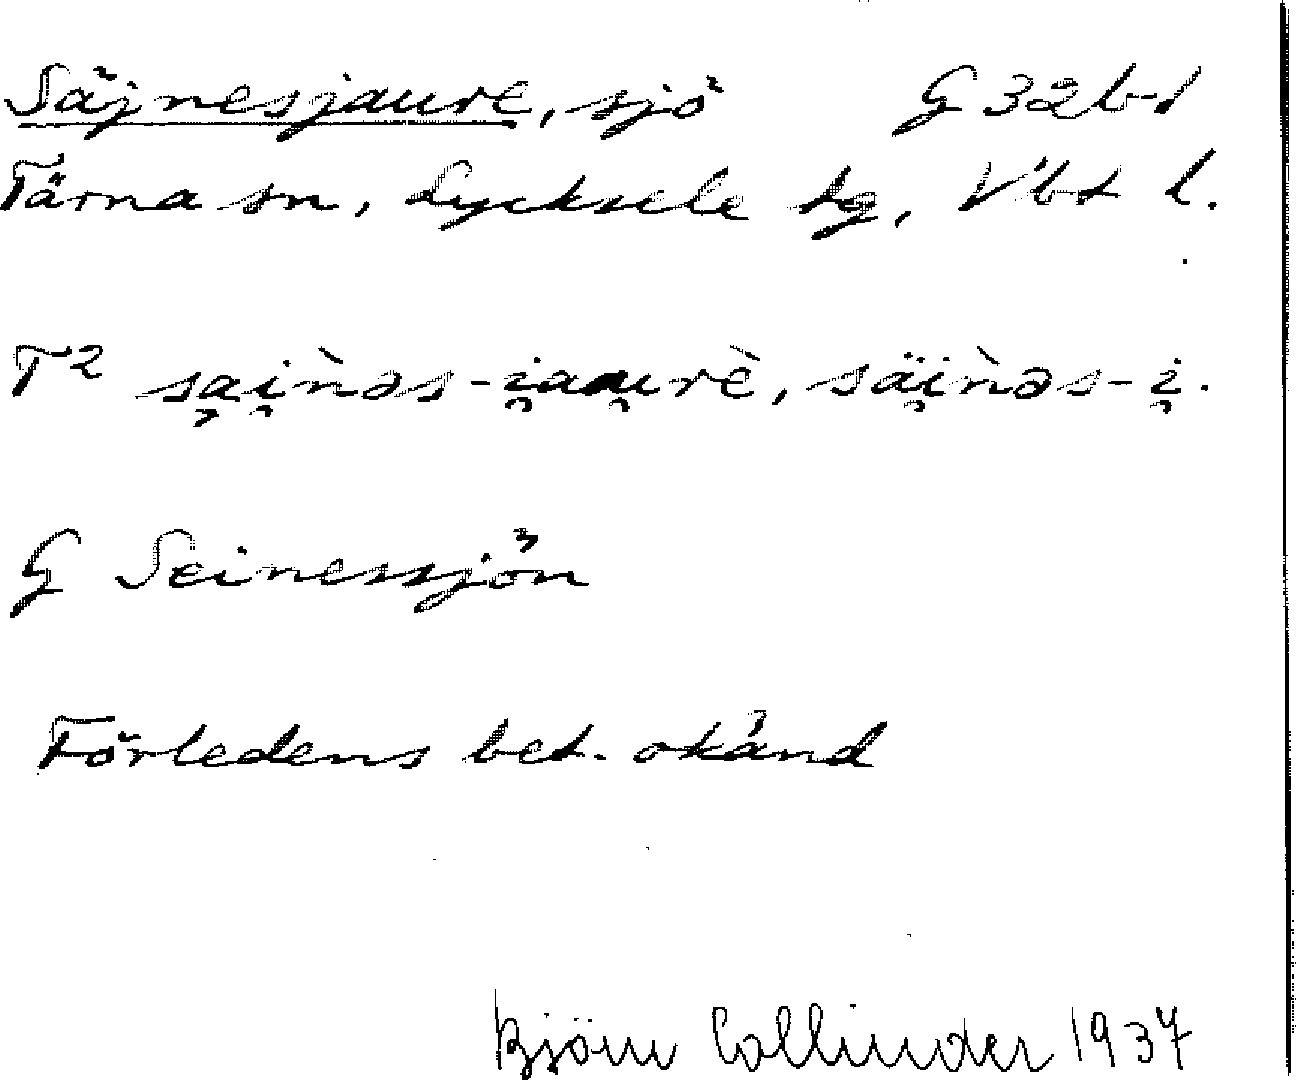 Säjnesjaure, sjö G 32 b-d
Tärna sn, Lycksele tg, Vbt l.
T² sa̧i̯ǹəs-i̯au̯rè, säi̯ǹəs-i̯.
G Seinessjön
Förledens bet. okänd
Björn Collinder 1937